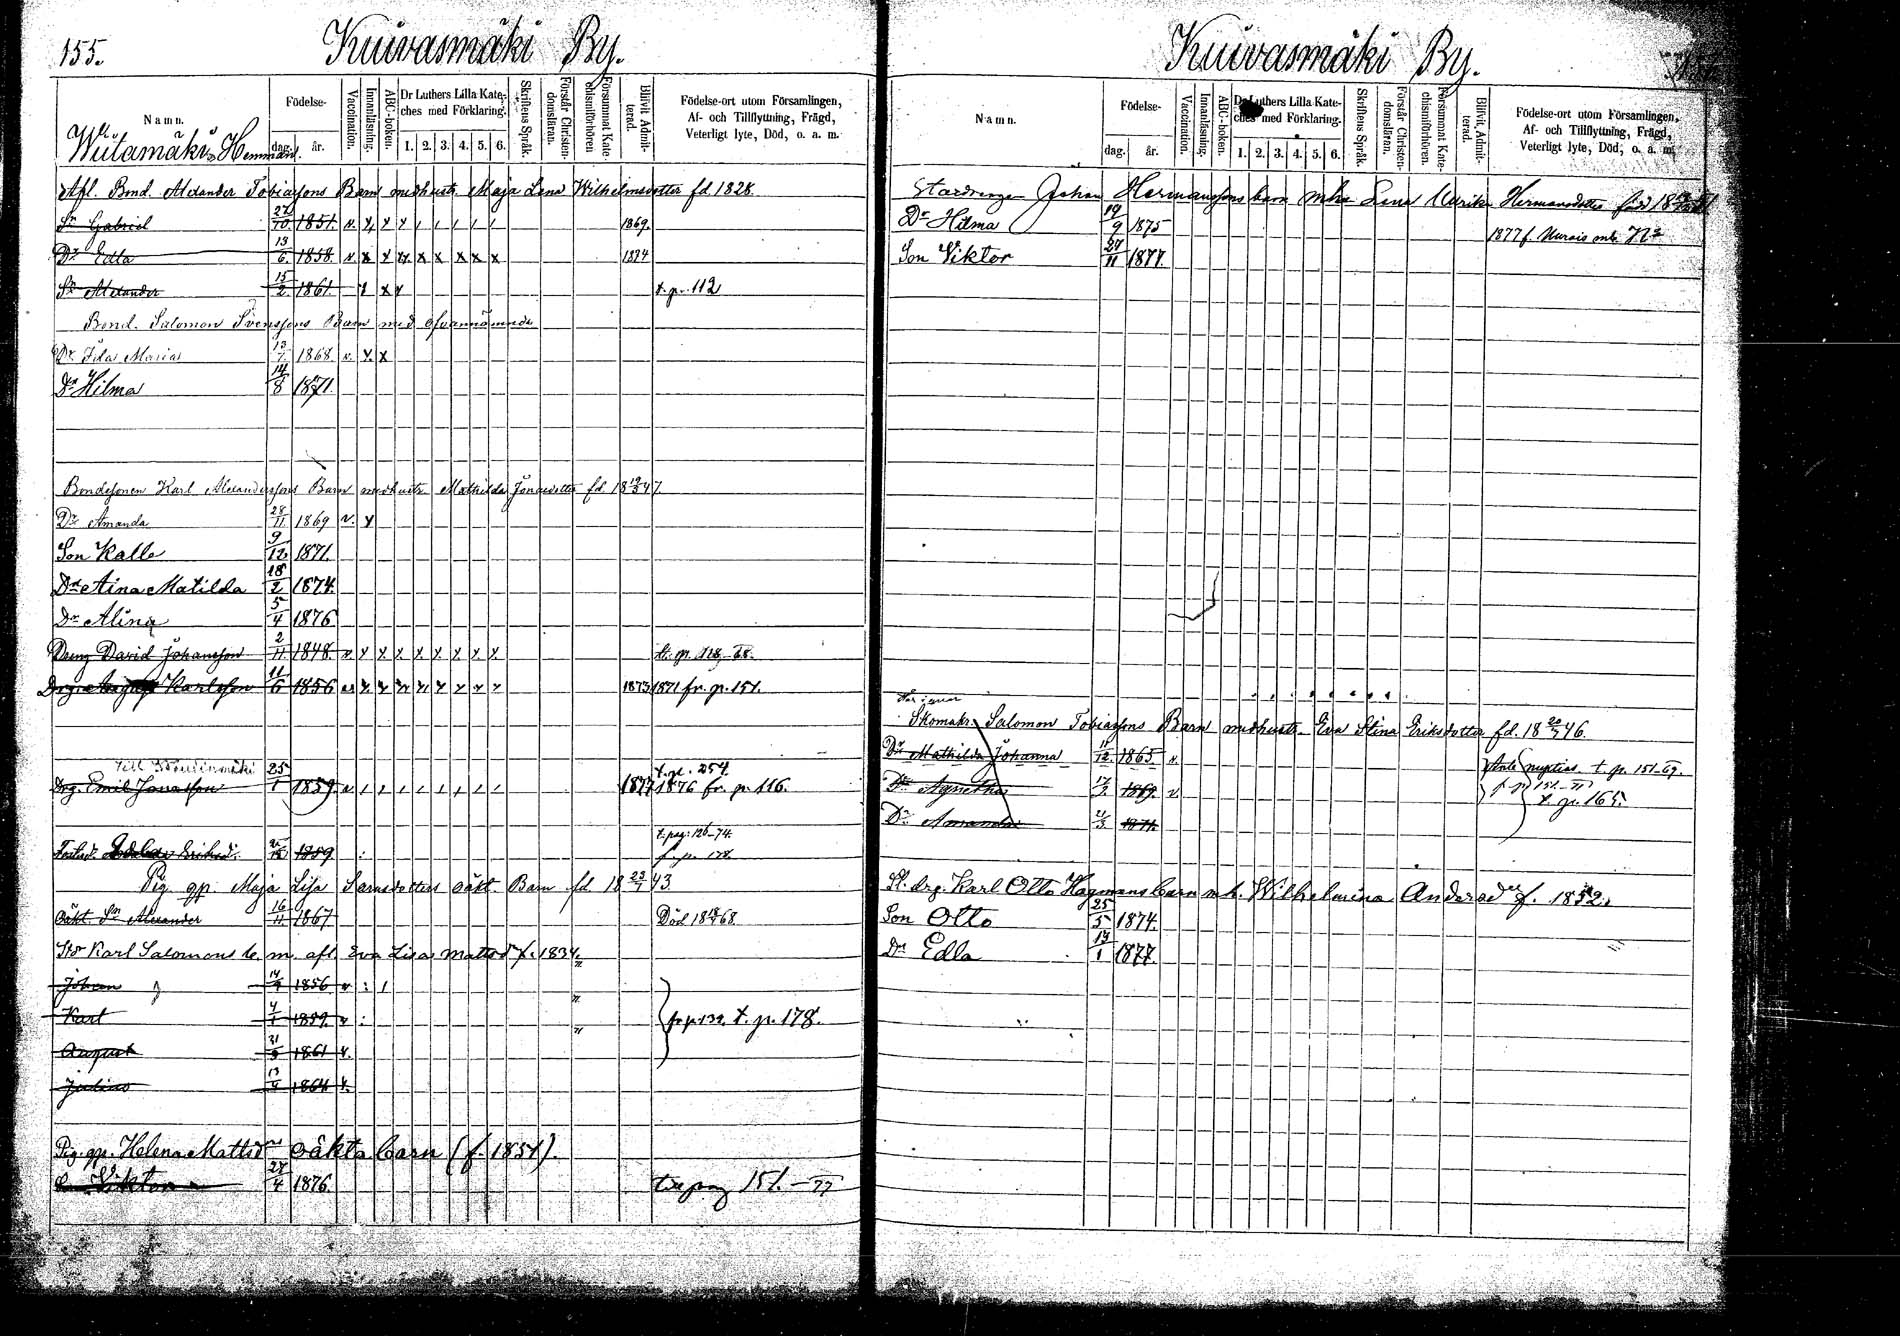 155.
Kuivasmäki By.
Namn.
Födelse-
dag.
år.
Vaccination.
Innanläsning.
ABC-boken.
Dr Luthers Lilla Kate-
ches med Förklaring.
1. 2. 3. 4. 5. 6.
Skriftens Språk.
Förstår Christen-
domsläran.
Försummat Kate-
chismiförhören
Blifvit Admit-
terad.
Födelse-ort utom Församlingen,
Af- och Tillflyttning, Frägd,
Veterligt lyte, Död, o. a. m.
Wiitamäki Hemman.
Afl. Bond. Alexander Tobiassons Barn medhustr. Maja Lena Wilhelmsdotter fd 1828.
Sn Gabriel 27/10 1851. v. x x x / / / / / 1869.
Dr Edla 13/6 1858. v x x x x x x x x 1874
Sn Alexander 15/2 1861. x x x t. p. 112
Bond. Salomon Svenssons Barn med ofvannämnda
Dr Ida Maria 13/7 1868 v. x x
Dr Hilma 14/8 1871.
Bondesonen Karl Alexanderssons Barn medhustr Mathilda Jonasdotter fd. 18 19/3 47.
Dr Amanda 28/11 1869 v. x
Son Kalle 9/12 1871.
Dr Aina Matilda 18/2 1874.
Dr Alina 5/4 1876
Dreng David Johansson 2/11 1848. v x x x x x x x x t. p. 128-68.
Drg. Karlsson 11/6 1856 v x x x x x x x x 1873 1871 fr. p. 151.
t. p. 254.
Drg. Emil Jonasson 25/1 1859 v / / / / / / / / 1877 1876 fr. p. 116.
t. pag. 126-74.
Eriksd. 1859 f. p. 178.
Pig. gp. Maja Lisa Barn fd 18 23/7 43.
oäkt. Sn Alexander 16/11 1867 Död 18 18/ 68.
Karl Salomons b. m. afl. Eva Lisa Mattsdr f. 1834.
Johan 14/4 1856 v : /
Karl 4/1 1859. v : fr p 132. t. p. 178.
August 31/ 1861 v.
Julius 13/4 1864 v.
Pig. gp. Helena Mattsdr oäkta barn (f. 1851).
Viktor 27/4 1876. till pag 151.-77
Kuivasmäki By.
Namn.
Födelse-
dag.
år.
Vaccination.
Innanläsning.
ABC-boken.
Dr Luthers Lilla Kate-
ches med Förklaring.
1. 2. 3. 4. 5. 6.
Skriftens Språk.
Förstår Christen-
domsläran.
Försummat Kate-
chismiförhören.
Blifvit Admit-
terad.
Födelse-ort utom Församlingen,
Af- och Tillflyttning, Frägd,
Veterligt lyte, Död, o. a. m.
Johan Hermanssons barn mhu Lena Ulrika Hermansdotter född
Dr Hilma 19/9 1875 1877 f.
Son Viktor 27/11 1877.
Skomakr. Salomon Tobiassons Barn medhustr. Eva Stina Eriksdotter fd. 18 20/7 46.
Dr Mathilda Johanna 11/12 1865 v. Ante nuptias t. p. 151-69.
Dr Agnetha 17/ 1869. v. t. p. 165.
Dr Amanda 21/3 1871.
St. drg. Karl Otto Hagmans barn m. h. Wilhelmina Andersdr f. 1852.
Son Otto 25/5 1874.
Dr Edla 13/1 1877.